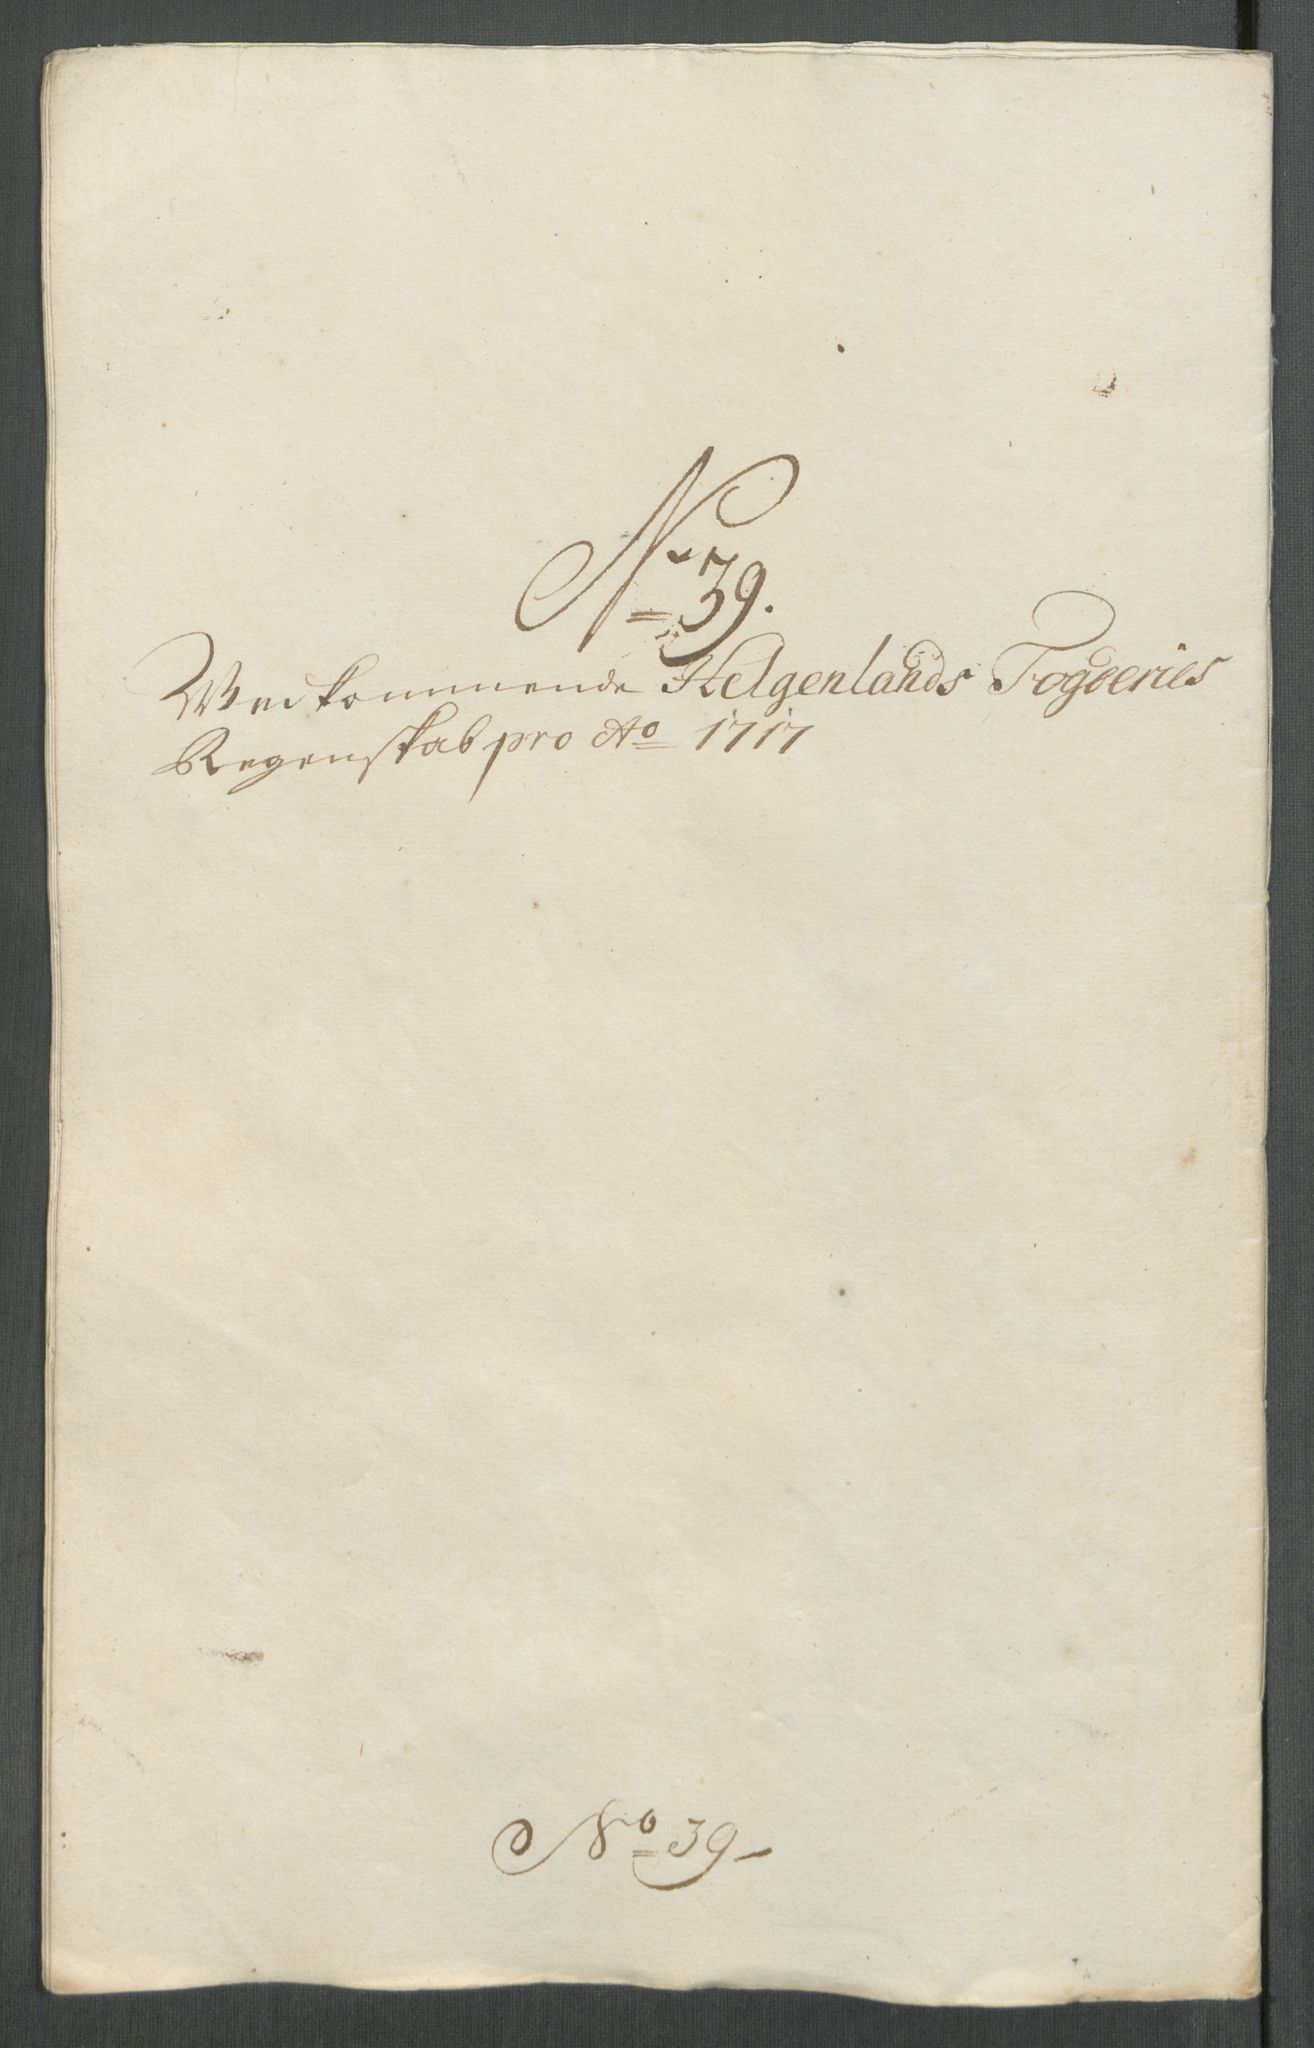 No 39.
Vedkommende Helgenlands Fogderies
Regenskab pro Ao 1717
No 39